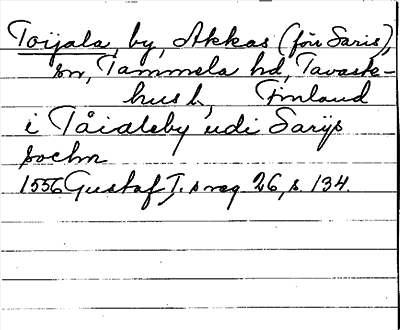 Toijala, by, Akkas (förr Saris),
sn, Tammela hd, Tavaste-
hus l., Finland
i Tåialaby udi Sarijs
sochn
1556 Gustaf I:s reg. 26, s. 134.